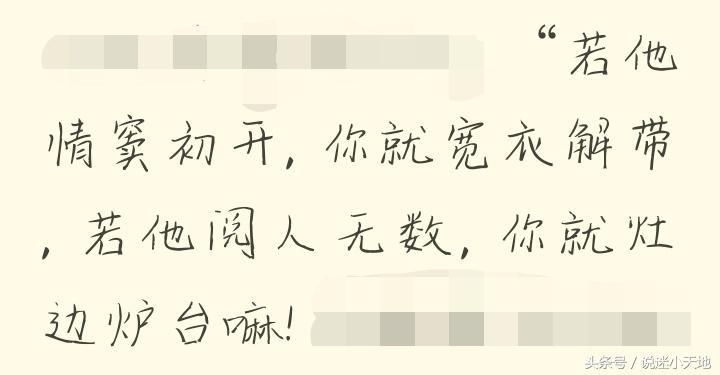 “若他
情窦初开,你就宽衣解带
,若他阅人无数,你就灶
边炉台嘛!
头条号/说迷小天地